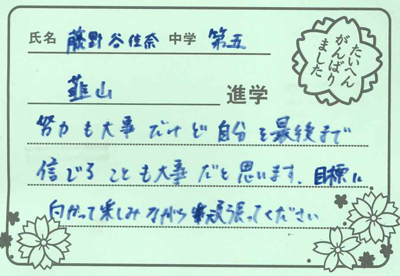 氏名 藤野谷佳奈 中学 第五
たいへん
がんばり
ました
韮山 進学
努力も大事だけど自分を最後まで
信じることも大事だと思います。目標に
向かって楽しみながら頑張ってください